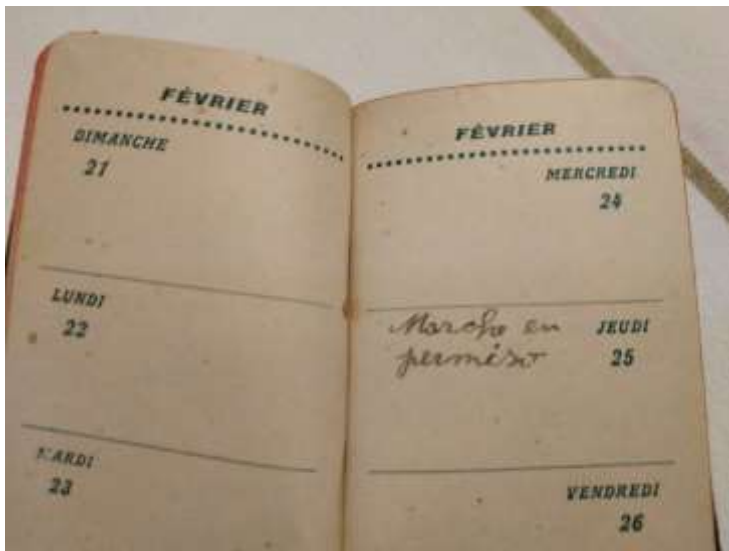 FÉVRIER
DIMANCHE
21
LUNDI
22
MARDI
23
FÉVRIER
MERCREDI
24
Marcho en
perméso
JEUDI
25
VENDREDI
26